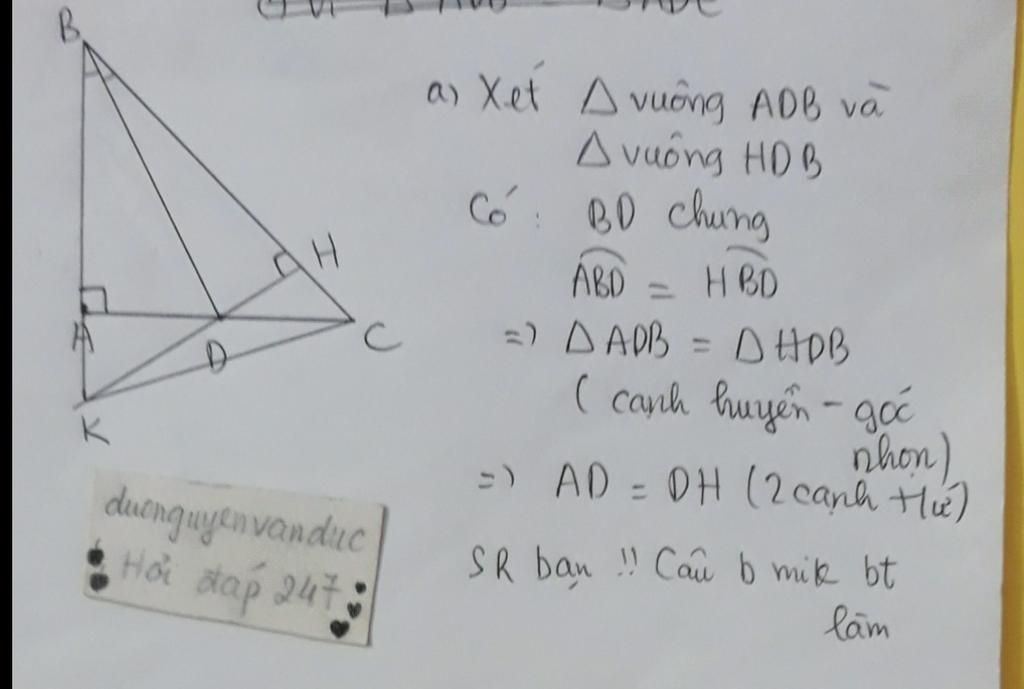 B
a) Xét Δ vuông ADB và
Δ vuông HDB
Có: BD chung
ABD = HBD
=> Δ ADB = Δ HDB
( cạnh huyền - góc
nhọn)
=> AD = DH (2 cạnh tứ)
SR bạn !! Câu b mik bt
làm
H
A
D
C
K
duonguyenvanduc
Hỏi đáp 247